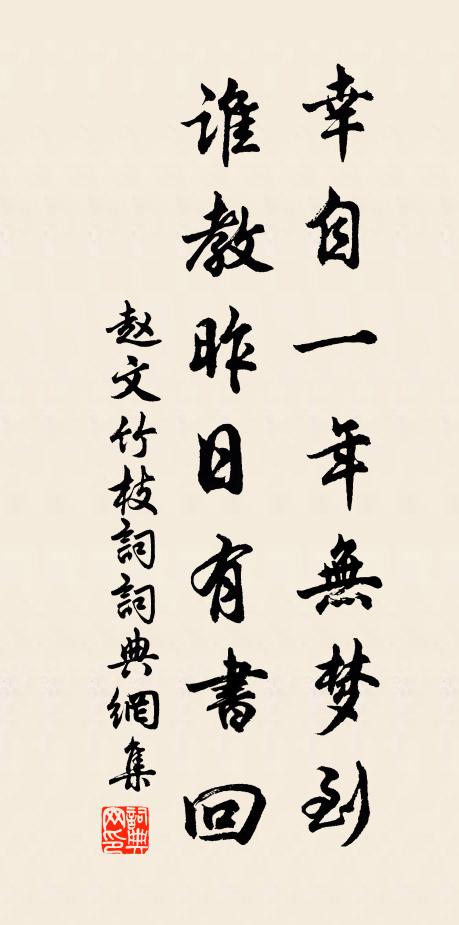 幸自一年無梦到
谁教昨日有書回
赵文竹枝詞詞典網集
詞典网印